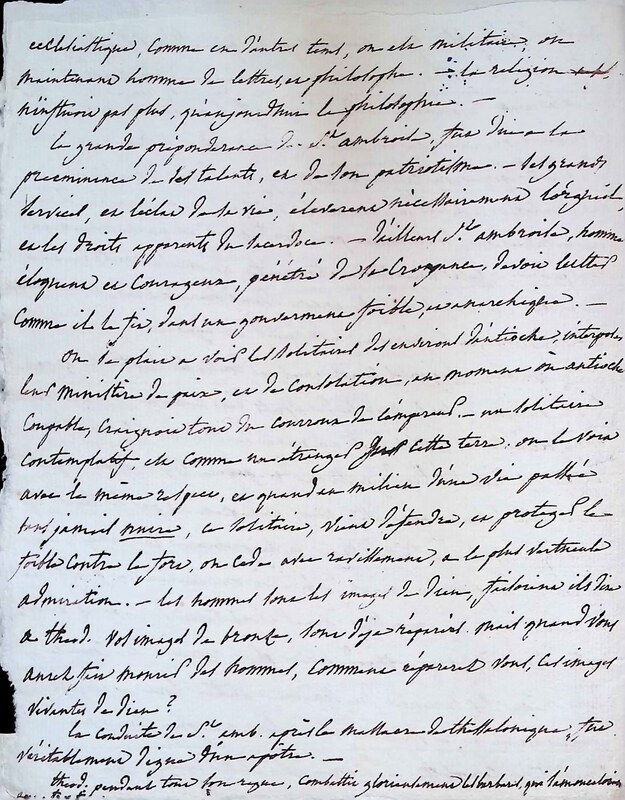 ecclésiastique, comme en d'autres tems, on est militaire, ou
maintenant homme de lettres, et philosophe. — la religion
n'influoit pas plus, qu'aujourdhui la philosophie. —
la grande préponderance de St. ambroise, fut due a la
preeminence de ses talents, et de son patriotisme. — ses grands
services, et l'éclat de sa vie, éleverent nécessairement
et les droits apparents du sacerdoce. — d'ailleurs St. ambroise, homme
éloquent et courageux, pénétré de sa croyance, devoit lutter
comme il le fit, dans un gouvernement foible, et anarchique. —
on se plait a voir les solitaires des environs d'antioche, interposer
leur ministère de paix, et de consolation, au moment où antioche
coupable, craignoit tout du courroux de l'empereur. — un solitaire
contemplatif, est comme un étranger sur cette terre. on le voit
avec le même respect, et quand au milieu d'une vie passée
sans jamais nuire, ce solitaire, vient défendre, et protéger le
foible contre le fort, on cede avec ravissement, a la plus vertueuse
admiration. — les hommes sont les images de dieu, faisoient ils dire
a théod. vos images de bronze, sont déja réparées. mais quand vous
aurez fait mourir des hommes, comment réparerez vous, ces images
vivantes de dieu?
la conduite de St. amb. après le massacre de thessalonique, fut
véritablement digne d'un apôtre. —
théod. pendant tout son regne, combattit glorieusement les barbares, qui